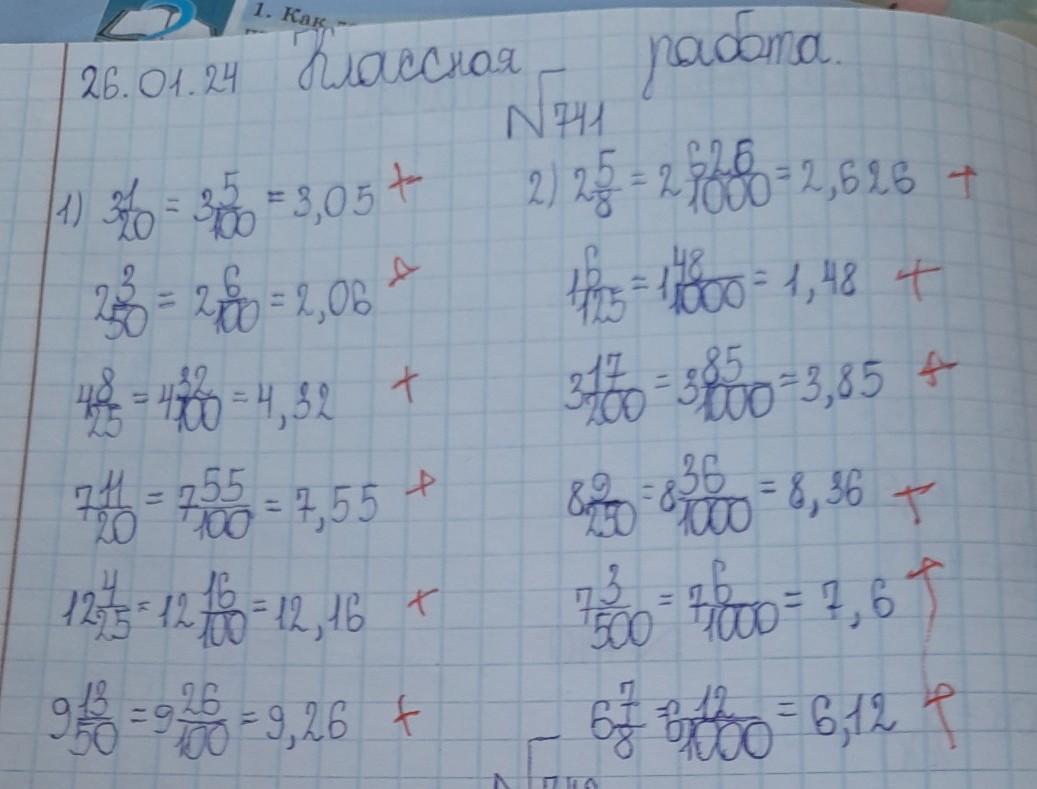 1. Как
26.01.24 Классная работа.
№741
1) 3 1/20 = 3 5/100 = 3,05 +
2) 2 5/8 = 2 626/1000 = 2,626 +
2 3/50 = 2 6/100 = 2,06 +
1 6/125 = 1 48/1000 = 1,48 +
4 8/25 = 4 32/100 = 4,32 +
3 17/200 = 3 85/1000 = 3,85 +
7 11/20 = 7 55/100 = 7,55 +
8 9/250 = 8 36/1000 = 8,36 +
12 4/25 = 12 16/100 = 12,16 +
7 3/500 = 7 6/1000 = 7,6 +
9 13/50 = 9 26/100 = 9,26 +
6 7/8 = 6 12/1000 = 6,12 +